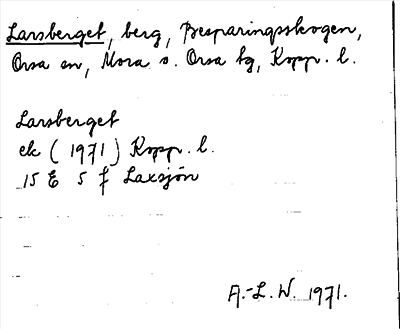 Larsberget, berg, Besparingsskogen,
Orsa sn, Mora o. Orsa tg, Kopp. l.
Larsberget
ek (1971) Kopp. l.
15 E 5 f Laxsjön
A.-L. W. 1971.